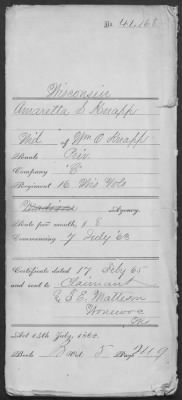 No. 41,168
Wisconsin
Amaretta S Knapp
Wid. of Wm O Knapp
Rank: Priv.
Company "C"
Regiment 16 Wis Vols
Madison Agency.
Rate per month, $ 8
Commencing 7 July '63
Certificate dated 17 Feby 65
and sent to Claimant
Wonewoc
Wis
Act 14th July, 1862.
Book B Vol. 5 Page 249